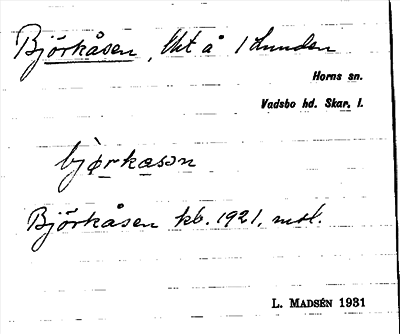 Björkåsen, lht å 1 Lunden
Horns sn.
Vadsbo hd. Skar. l.
bjørkasən
Björkåsen kb. 1921, mtl.
L. MADSÉN 1931